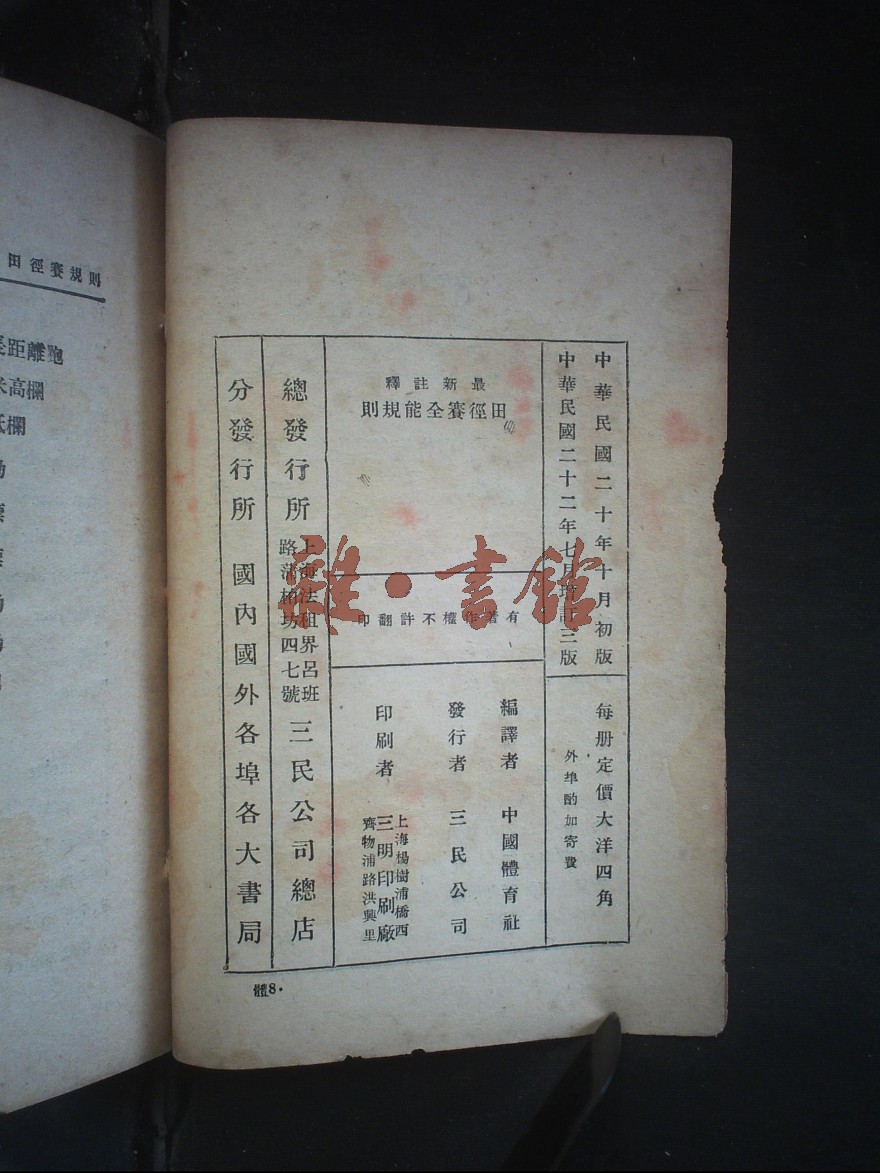 中華民國二十年十月初版
中華民國二十二年七月增訂三版
每册定價大洋四角
外埠酌加寄費
最新註釋
田徑賽全能規則
有著作權不許翻印
編譯者 中國體育社
發行者 三民公司
印刷者 三明印刷廠
上海楊樹浦橋西
齊物浦路洪興里
總發行所 上海法租界呂班路蒲柏坊四七號 三民公司總店
分發行所 國內國外各埠各大書局
體8.
雜·書館
田徑賽規則
距離跑
高欄
欄